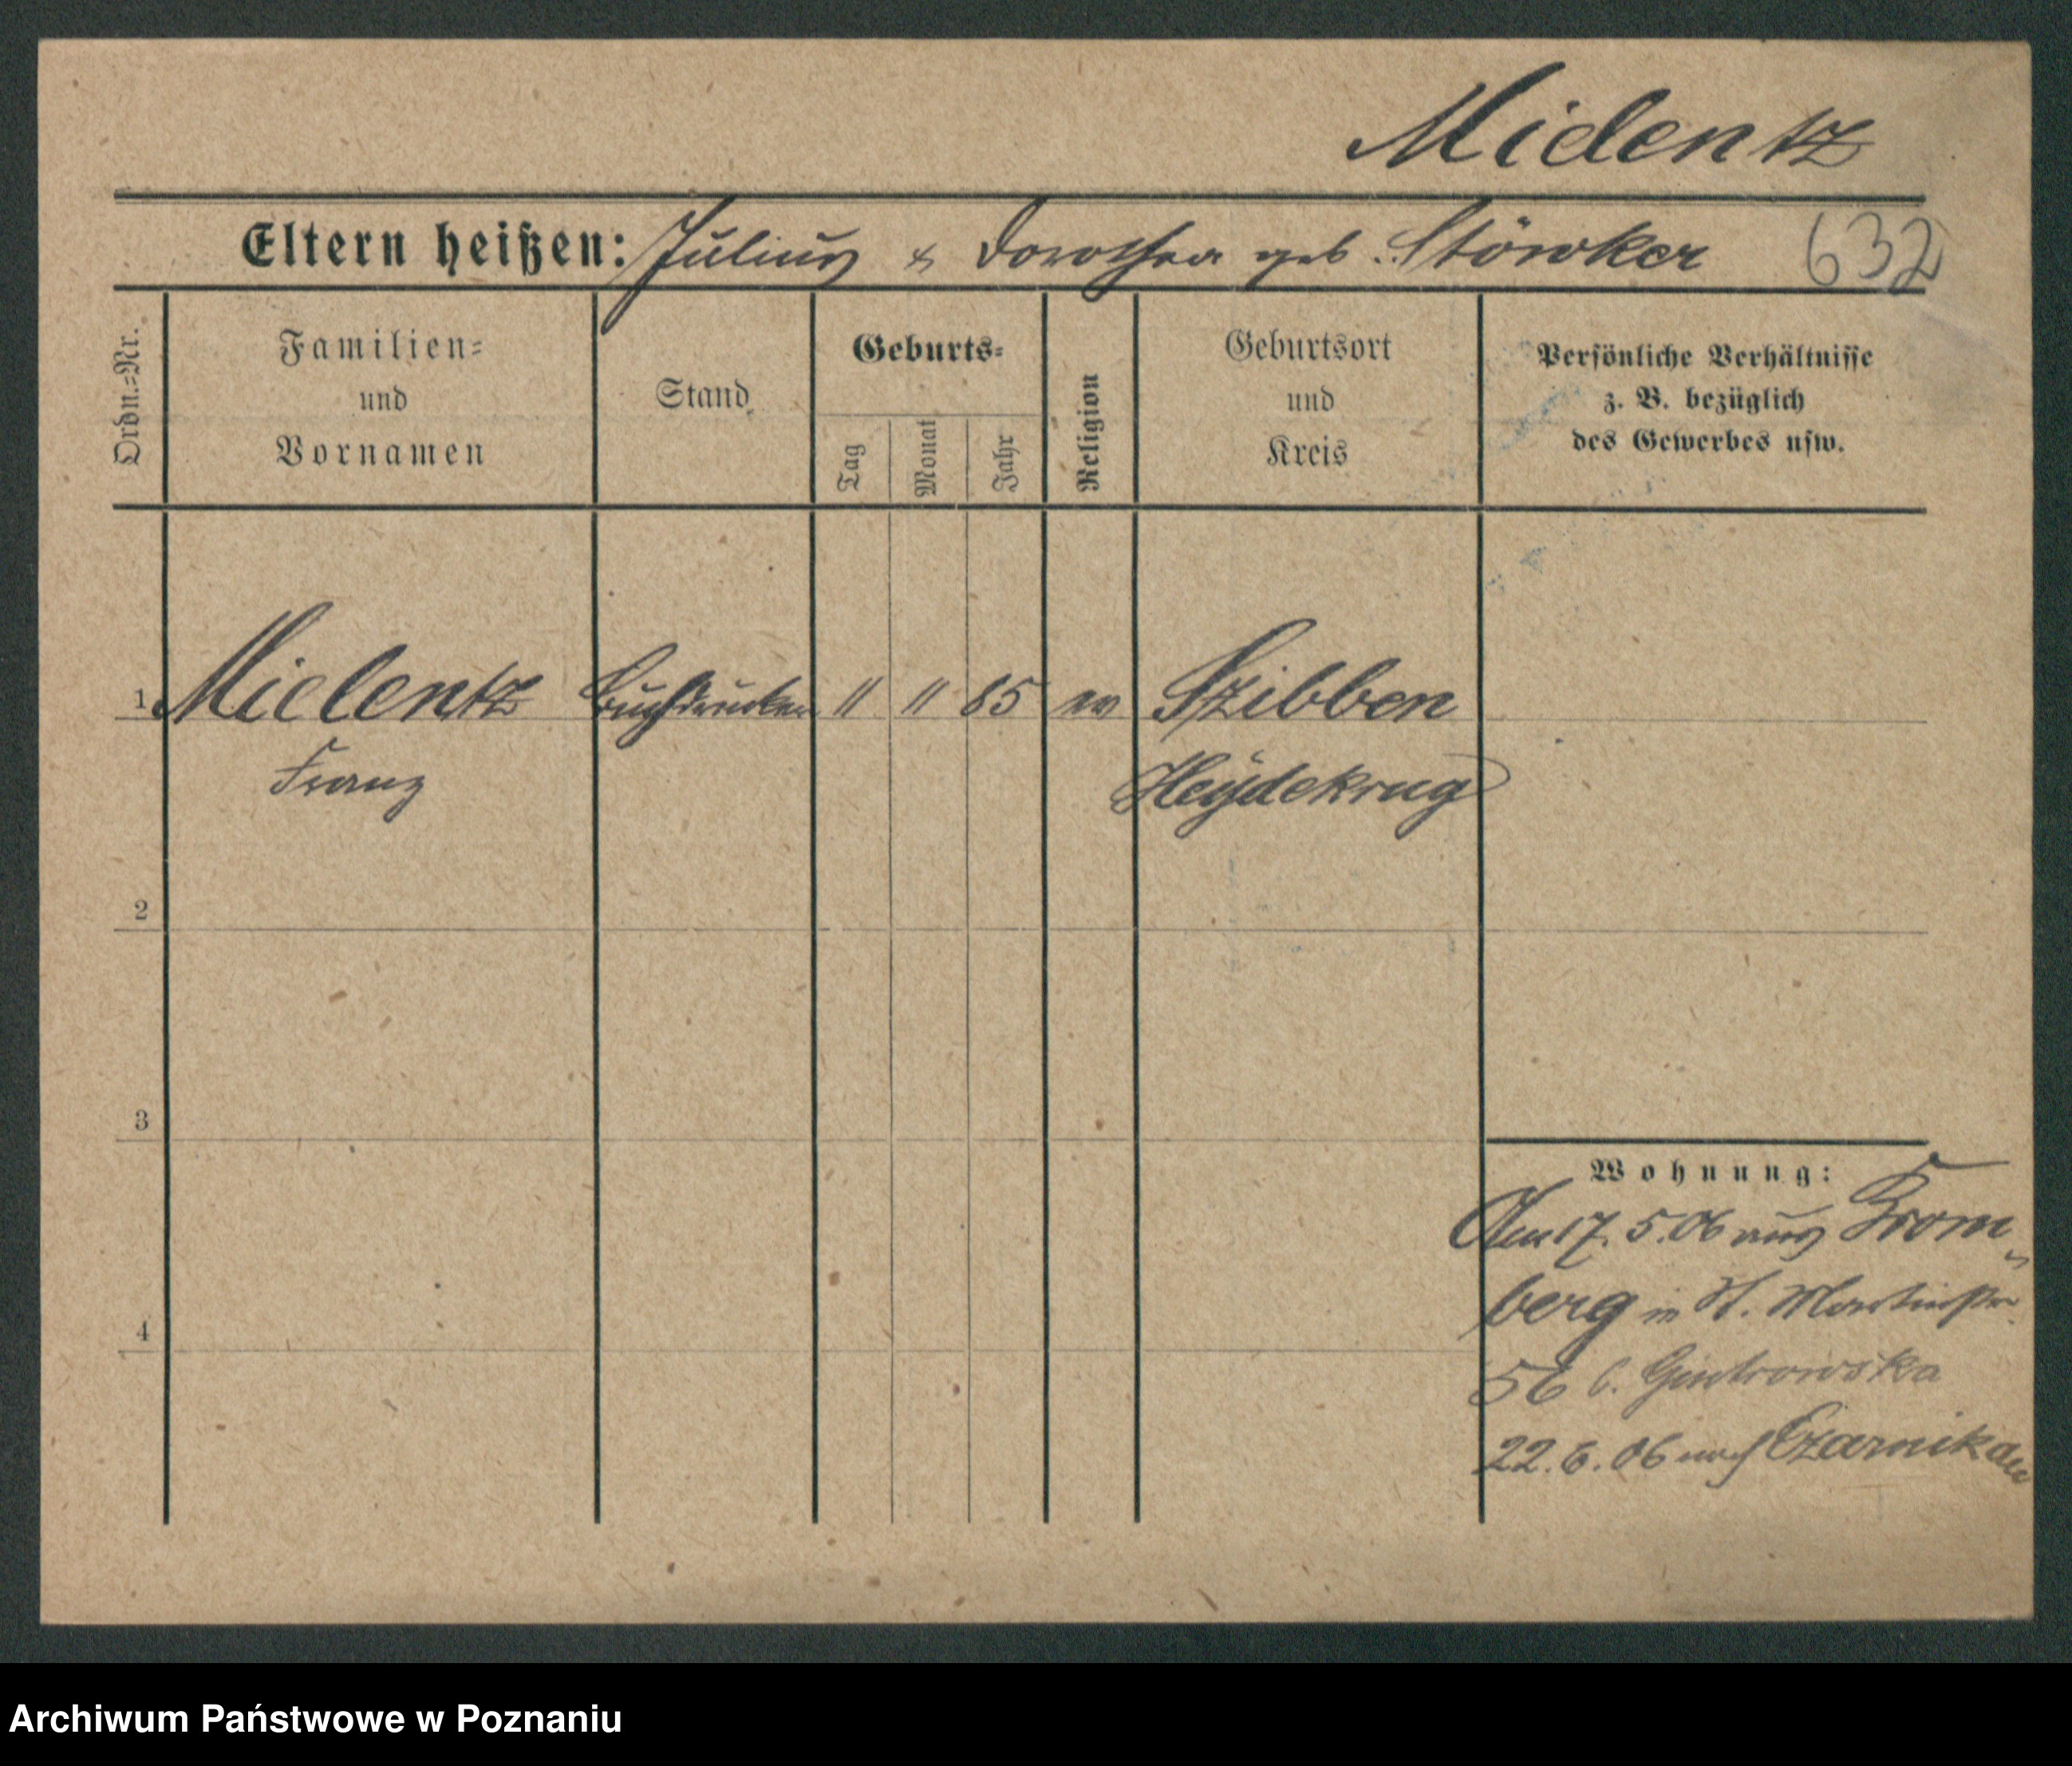 Mielentz
Eltern heißen: Julius & Dorothea geb. Stöwker
632
Ordn.=Nr.
Familien=
und
Vornamen
Stand
Geburts=
Tag
Monat
Jahr
Religion
Geburtsort
und
Kreis
Persönliche Verhältnisse
z. B. bezüglich
des Gewerbes usw.
1 Mielentz Buchdrucker " " 85 ev Szibben
Franz Heydekrug
2
3
4
Wohnung:
Am 17. 5. 06 aus Brom
berg in St. Martinstr.
56 b. Gintrowska
22. 6. 06 nach Czarnikau
Archiwum Państwowe w Poznaniu